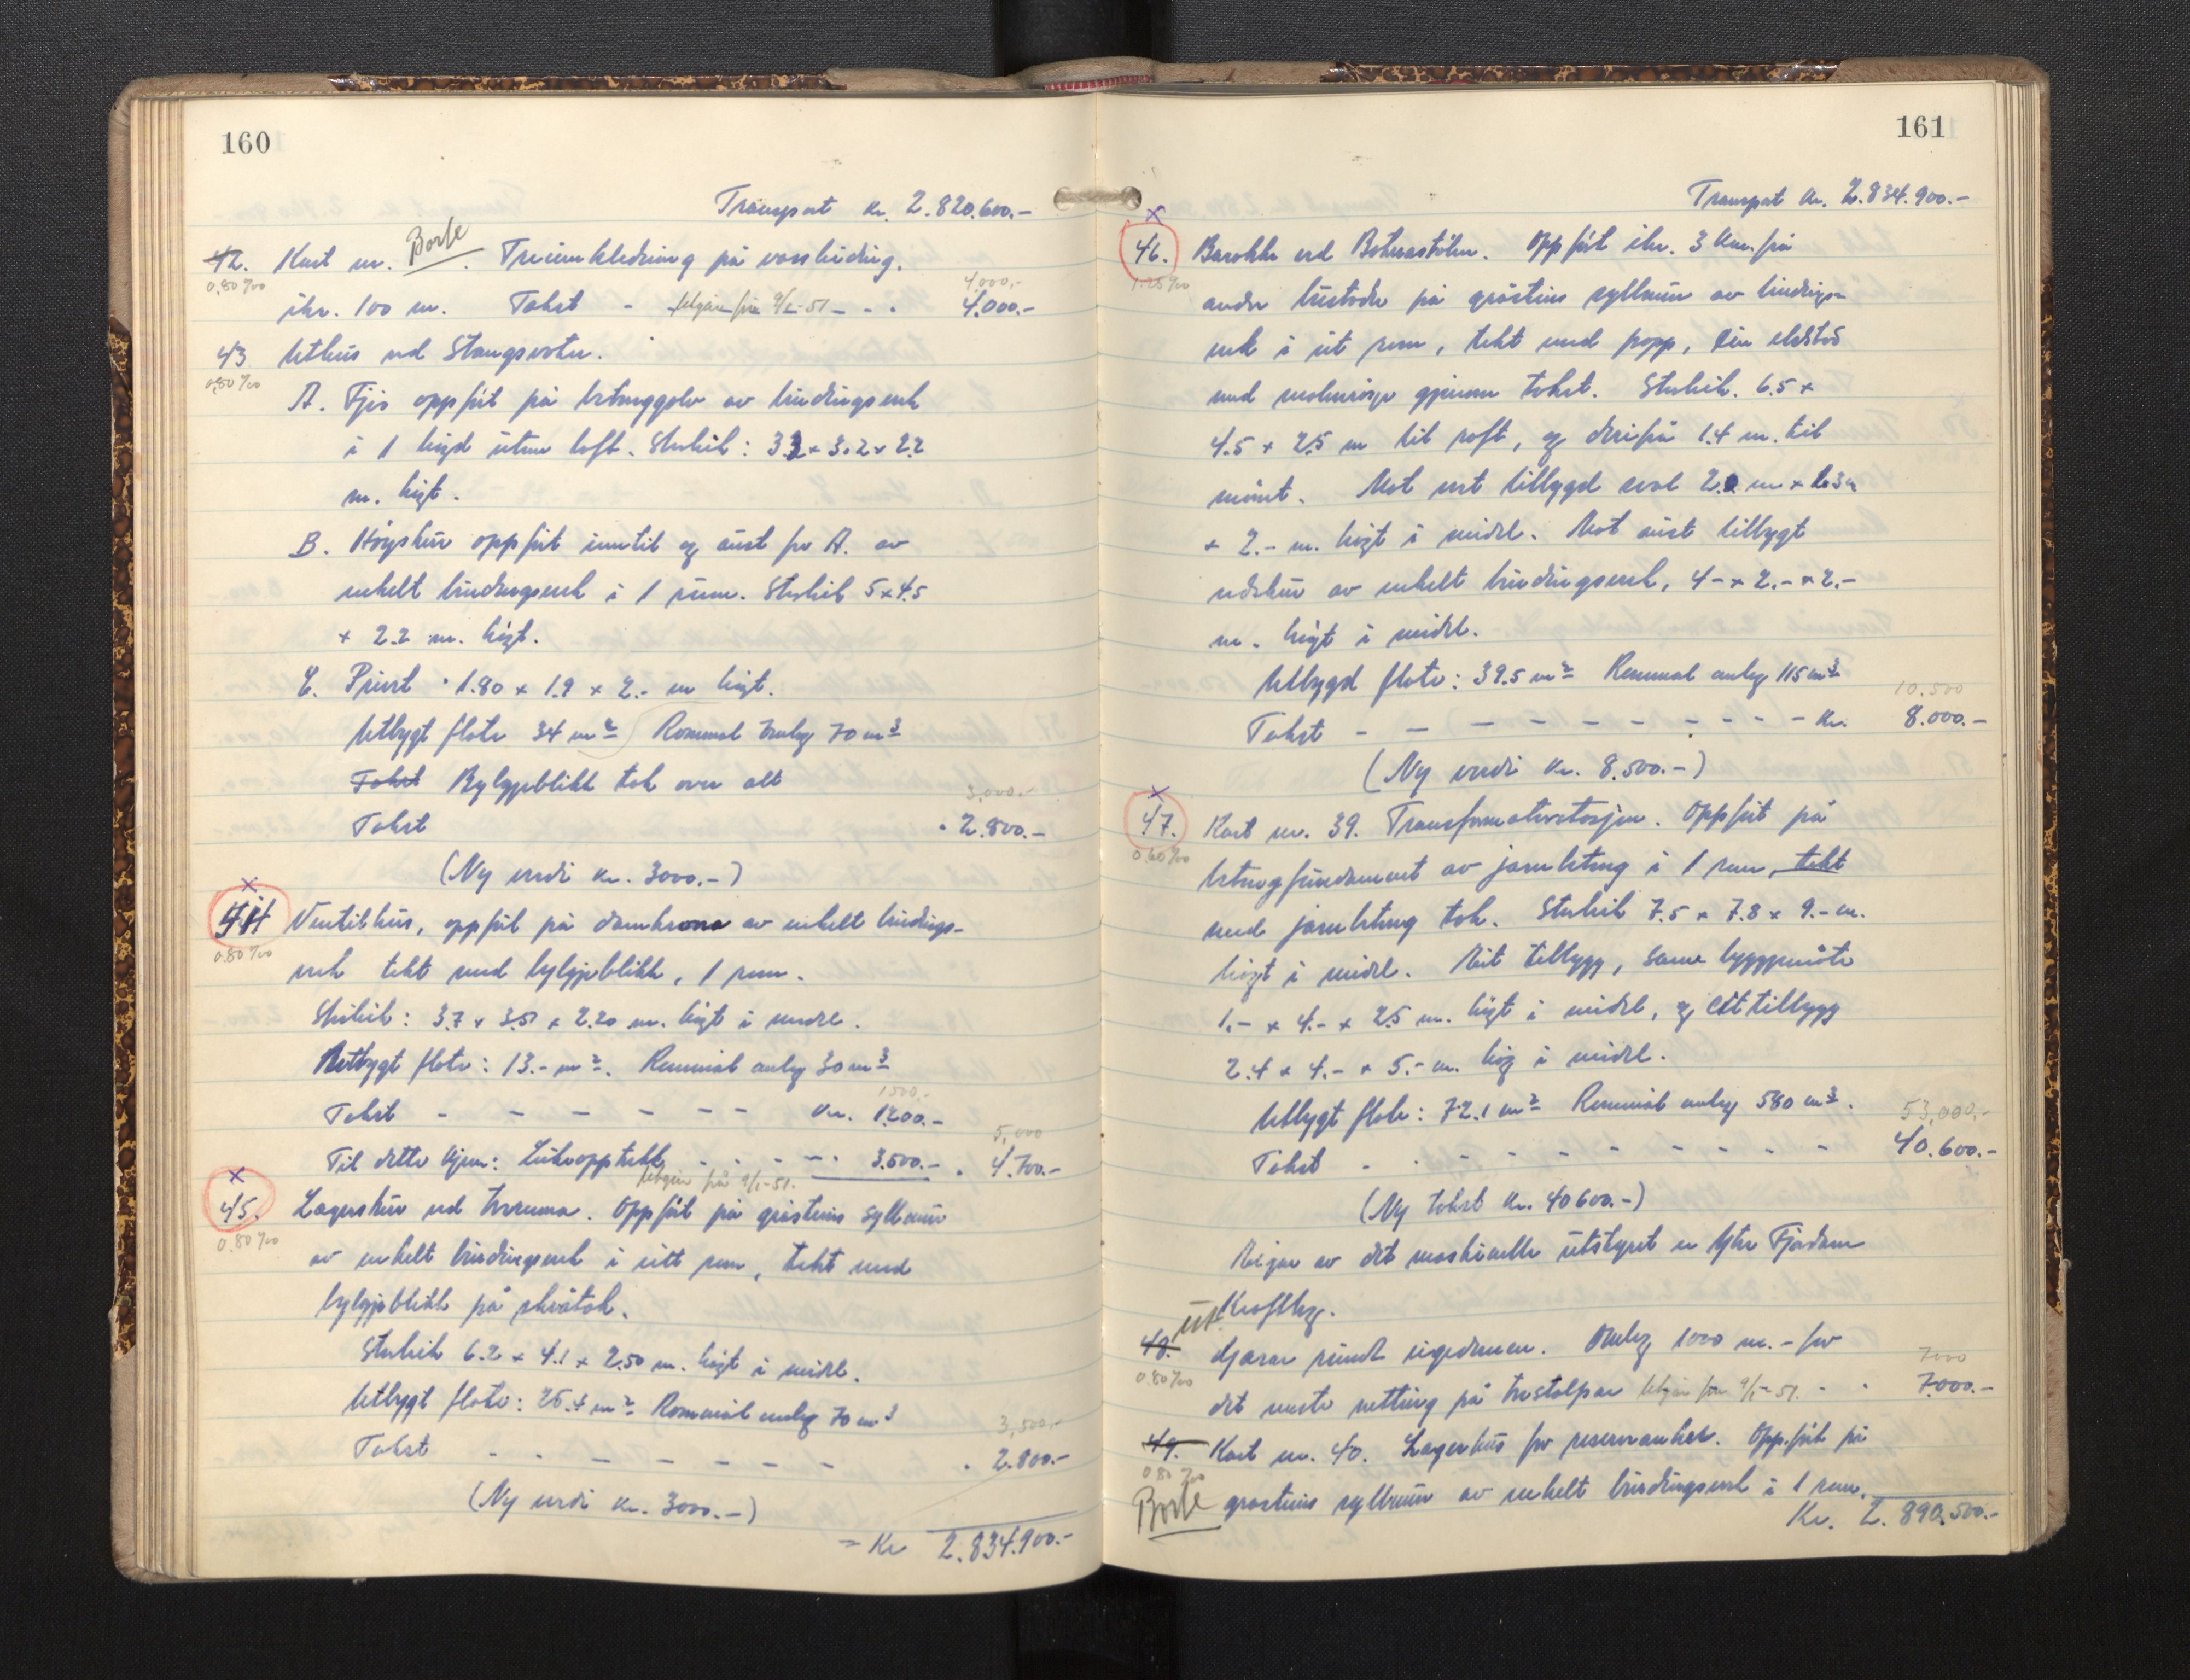 160
Transport kr. 2.820.600.-
42. Kart nr. Borte. Treinnkledning på vassleidning.
0.80 ‰
4.000.-
ikr. 100 m. Takst - utgår frå 9/1-51 - - 4.000.-
43 Uthus ved Stangsvatn.
0.80 ‰
A. Fjøs oppført på betonggolv av bindingsverk
i 1 høgd utan loft. Storleik: 3.2 x 3.2 x 2.2
m. høgt.
B. Høyskur oppført inntil og aust for A. av
enkelt bindingsverk i 1 rum. Storleik 5 x 4.5
x 2.2 m. høgt.
C. Privet 1.80 x 1.9 x 2.- m høgt.
Utbygt flate 34 m² Rommål omlag 70 m³
Takst Bylgjeblikk tak over alt
3,000.-
Takst 2.800.-
(Ny verdi kr. 3000.-)
x
44 Ventilhus, oppført på damkrona av enkelt bindings-
0.80 ‰
verk tekt med bylgjeblikk, 1 rum.
Storleik: 3.7 x 3.51 x 2.20 m. høgt i middel.
Utbygt flate: 13.- m². Rommål omlag 30 m³
1500.-
Takst - - - - - - - kr. 1200.-
5,000
Til dette kjem: Lukeopptrekk - - - - 3.500.- . 4.700.-
utgår frå 9/1-51.
x
45. Lagerskur ved . Oppført på gråsteins syllmur
0.80 ‰
av enkelt bindingsverk i eitt rum, tekt med
bylgjeblikk på skråtak.
Storleik 6.2 x 4.1 x 2.50 m. høgt i middel.
Utbygt flate: 25.4 m² Rommål omlag 70 m³
3,500.-
Takst - - - - - - - . 2.800.-
(Ny verdi kr. 3000.-)
= Kr 2.834.900.-
161
Transport kr. 2.834.900.-
x
46. Barakke ved . Oppført ikr. 3 km. frå
1.25 ‰
andre hustader på gråsteins syllmur av bindings-
verk i eit rum, tekt med papp, ein eldstad
med gjennom taket. Storleik. 6.5 x
4.5 x 2.5 m til raft, og derifrå 1.4 m. til
mønet. Mot vest tilbygd sval 2.0 m x 1.3 m
x 2.- m. høgt i middel. Mot aust tilbygt
vedskur av enkelt bindingsverk, 4.- x 2.- x 2.-
m. høgt i middel.
Utbygd flate: 39.5 m² Rommål omlag 115 m³
10.500
Takst - - - - - - - - - - - kr. 8.000.-
(Ny verdi kr. 8.500.-)
x
47. Kart nr. 39. Transformatorstasjon. Oppført på
0.60 ‰
betongfundament av jarnbetong i 1 rum, tekt
med jarnbetong tak. Storleik 7.5 x 7.8 x 9.- m.
høgt i middel. Eit tilbygg, same byggjemåte
1.- x 4.- x 2.5 m. høgt i middel, og eit tilbygg
2.4 x 4.- x 5.- m. høg i middel.
Utbygt flate: 72.1 m² Rommål omlag 580 m³.
53,000.-
Takst - - - - - - - - - - 40.600.-
(Ny takst kr. 40600.-)
Eigar av det maskinelle utstyret er Ytre Fjordane
Kraftlag.
Ut
48. Gjerar rundt eigedomen. Omlag 1000 m. - for
0.80 ‰
7000
det meste netting på trestolpar utgår frå 9/1-51. - - 7.000.-
49. Kart nr. 40. Lagerhus for reserveanker. Oppført på
0.80 ‰
Borte
gråsteins syllmur av enkelt bindingsverk i 1 rum.
Kr. 2.890.500.-